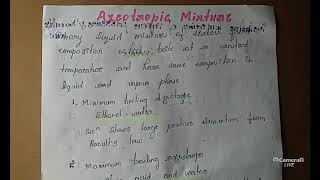 Azeotropic Mixture
Binary liquid mixtures of certain
composition which boils at a constant
temperature and have same composition in
liquid and vapour phase
1. Minimum boiling azeotrope
Ethanol-water
Solⁿ shows large positive deviation from
Raoult's law
2. Maximum boiling azeotrope
acid and water
CameraFi
LIVE